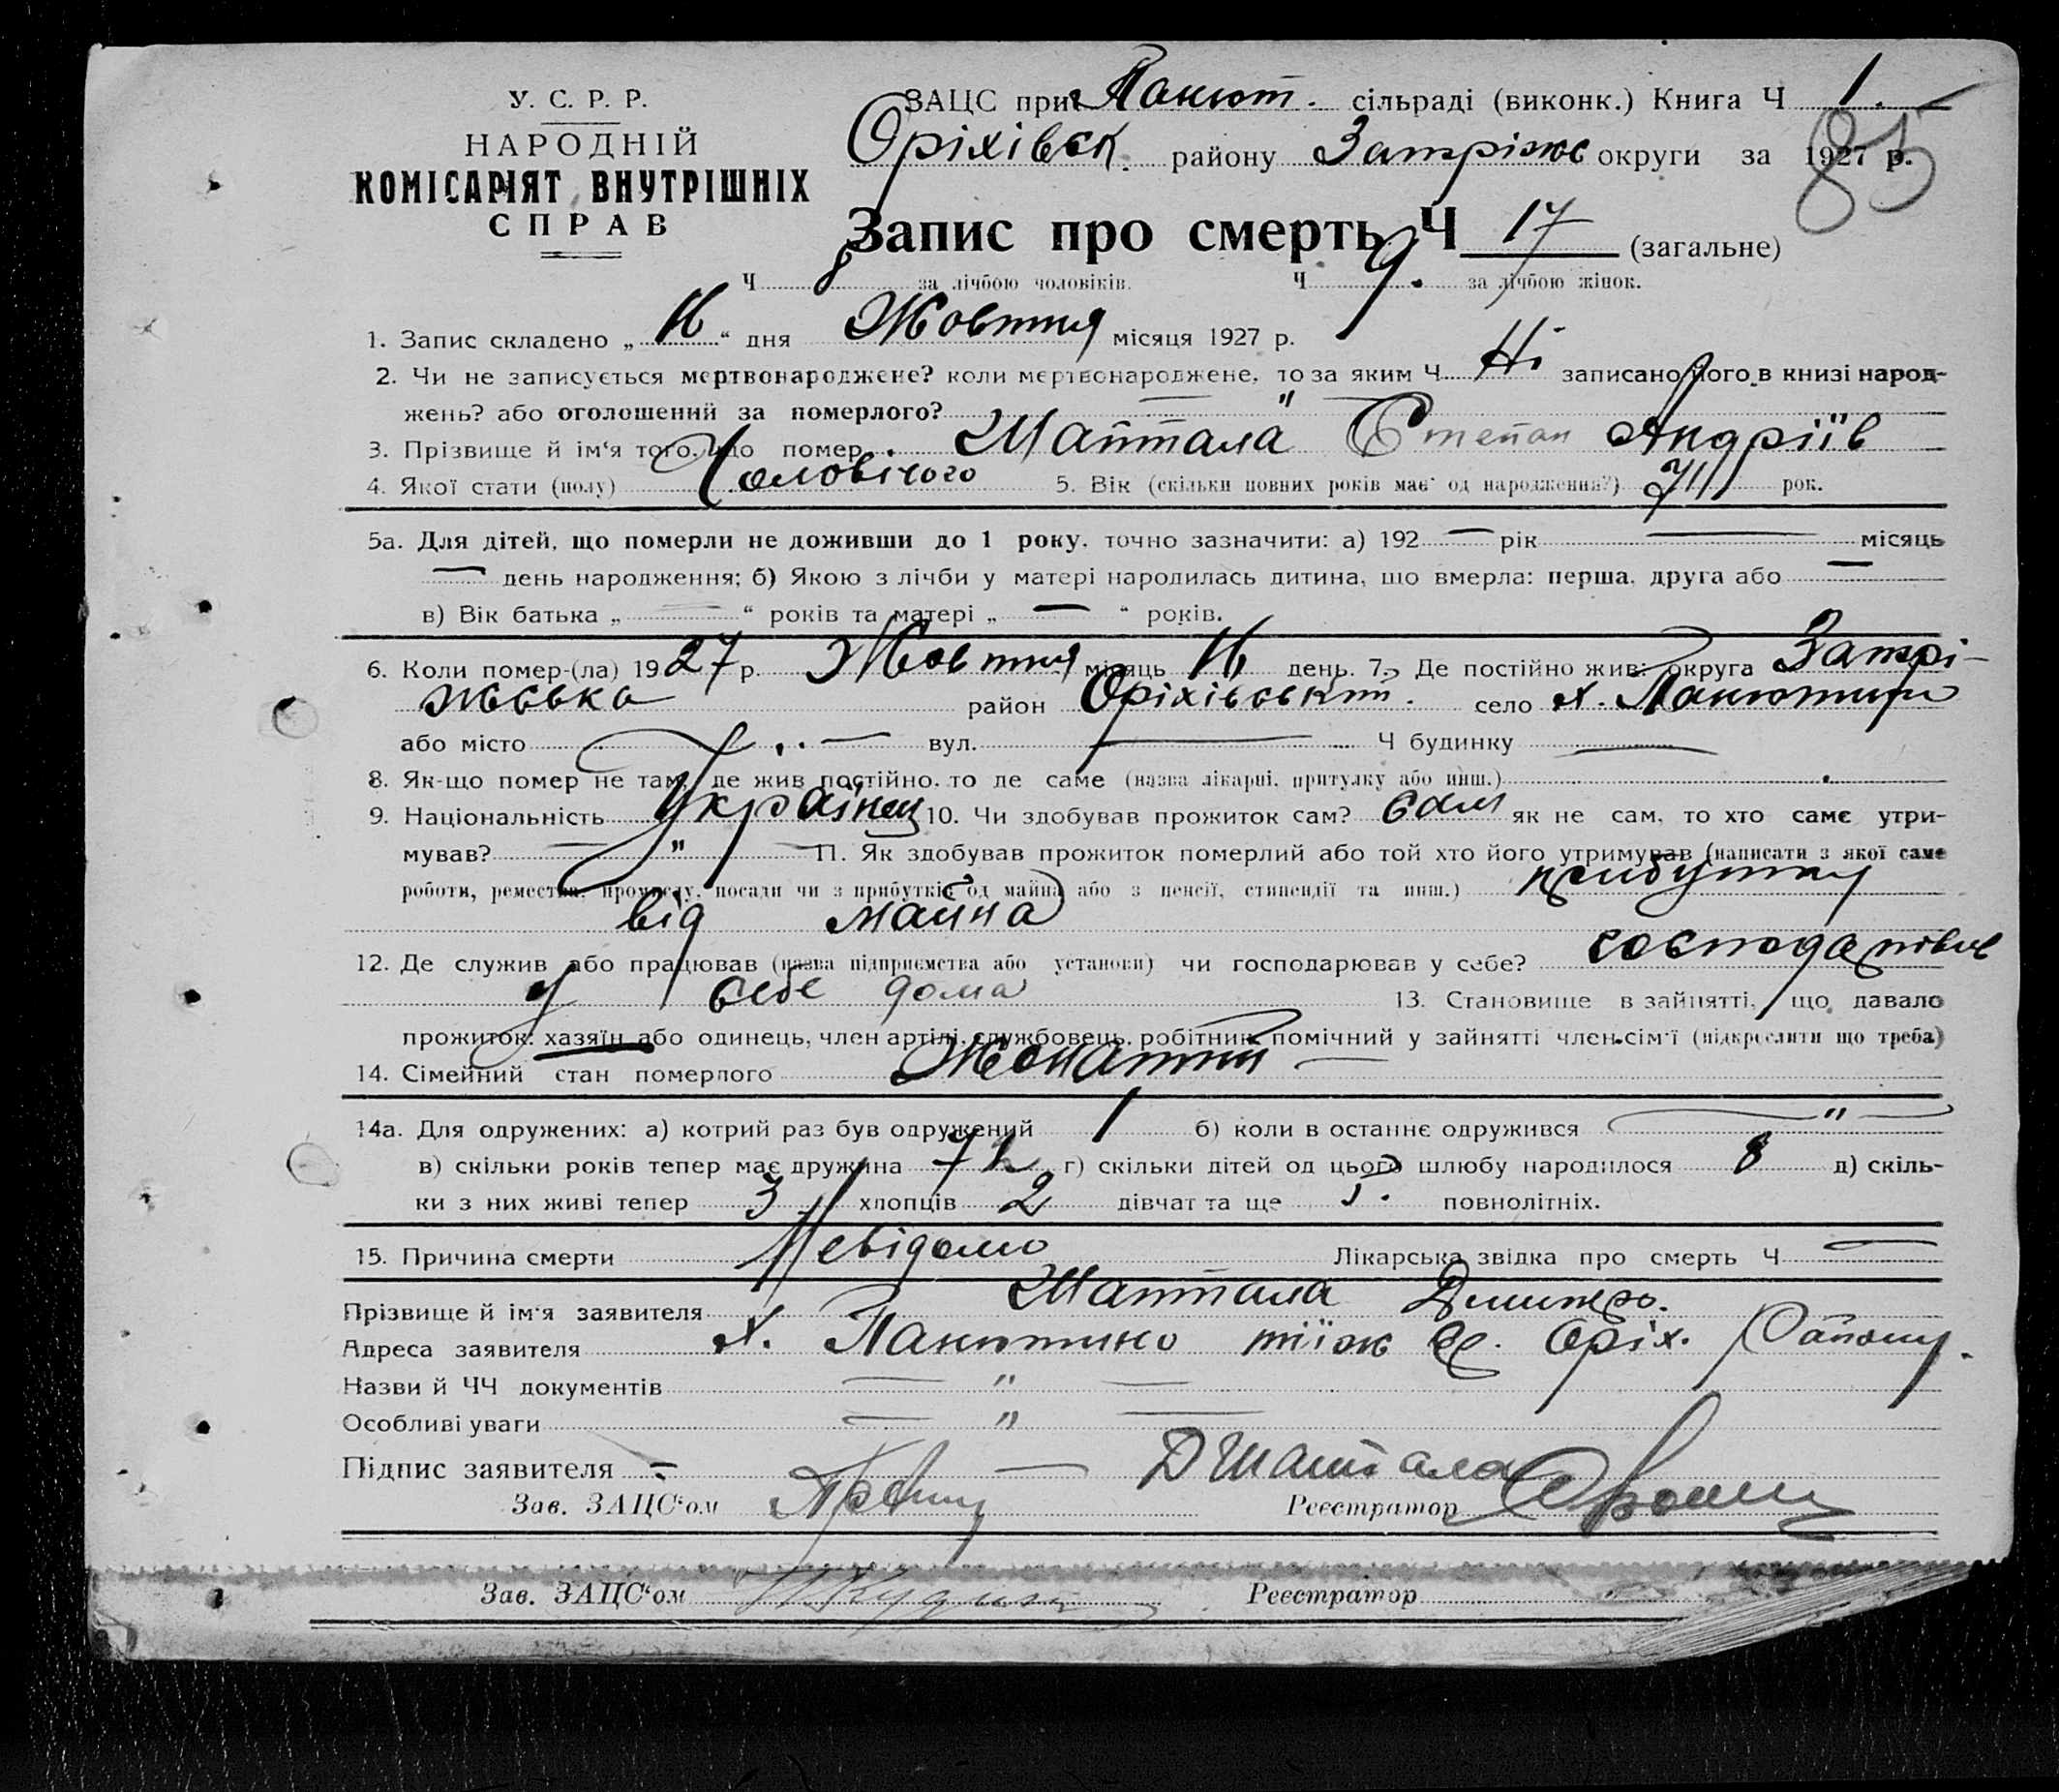 У. С. Р. Р.
НАРОДНІЙ
КОМІСАРІЯТ ВНУТРІШНІХ
СПРАВ
ЗАЦС при Панют. сільраді (виконк.) Книга Ч 1.
Оріхівск. району Запоріжс округи за 1927 р.
85
Запис про смерть Ч 17 (загальне)
Ч 8 за лічбою чоловіків. Ч 9. за лічбою жінок.
1. Запис складено „ “ дня Жовтня місяця 1927 р.
2. Чи не записується мертвонароджене? коли мертвонароджене, то за яким Ч Ні записано його в книзі народ-
жень? або оголошений за померлого? — " —
3. Прізвище й ім‘я того, що помер Шаптала Степан Андріїв
4. Якої стати (полу) Чоловічого 5. Вік (скільки повних років має од народження?) рок.
5а. Для дітей, що померли не доживши до 1 року, точно зазначити: а) 192 — рік — місяць
— день народження; б) Якою з лічби у матері народилась дитина, що вмерла: перша, друга або —
в) Вік батька „ — “ років та матері „ — “ років.
6. Коли помер-(ла) 1927 р. Жовтня місяць день. 7. Де постійно жив: округа Запорі-
жська район Оріхівський. село х. Панютину
або місто — вул. — Ч будинку —
8. Як-що помер не там, де жив постійно, то де саме (назва лікарні, притулку або инш.)
9. Національність Українец 10. Чи здобував прожиток сам? Сам як не сам, то хто саме утри-
мував? — " — 11. Як здобував прожиток померлий або той хто його утримував (написати з якої саме
роботи, ремества, промислу, посади чи з прибутків од майна або з пенсії, стипендії та инш.) прибутку
від майна
12. Де служив або працював (назва підприємства або установи) чи господарював у себе? господарював
у себе дома 13. Становище в зайнятті, що давало
прожиток: хазяїн або одинець, член артілі, службовець, робітник, помічний у зайнятті член сім‘ї (підкреслити що треба)
14. Сімейний стан померлого Жонатий —
14а. Для одружених: а) котрий раз був одружений 1 б) коли в останнє одружився — " —
в) скільки років тепер має дружина 72 г) скільки дітей од цього шлюбу народилося 8 д) скіль-
ки з них живі тепер 3 хлопців 2 дівчат та ще 5. повнолітніх.
15. Причина смерти Невідомо Лікарська звідка про смерть Ч —
Прізвище й ім‘я заявителя Шаптала Дмитро.
Адреса заявителя х. Панютино тіїж Оріх. Району.
Назви й ЧЧ документів — " —
Особливі уваги — " —
Підпис заявителя — Д Шаптала
Зав. ЗАЦС‘ом Реєстратор
Зав. ЗАЦС‘ом Реєстратор